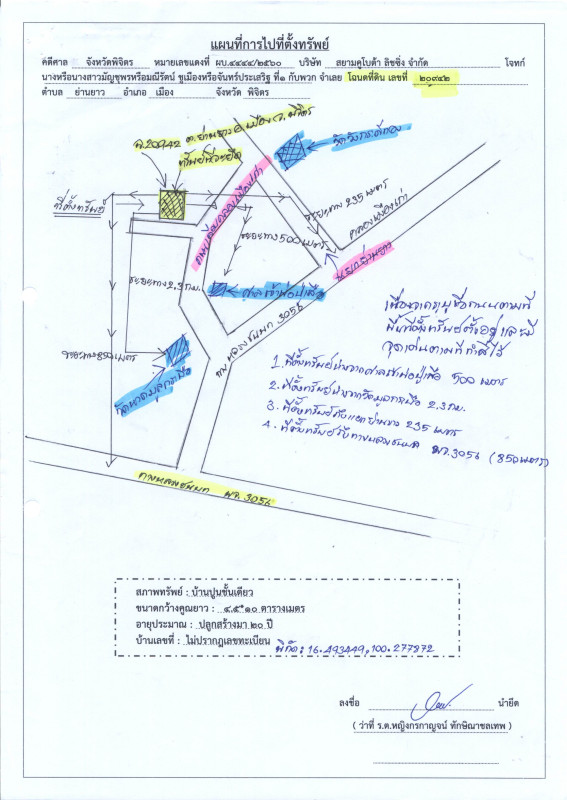 แผนที่การไปที่ตั้งทรัพย์
คดีศาล จังหวัดพิจิตร หมายเลขแดงที่ ผบ.๔๔๔๔/๒๕๖๐ บริษัท สยามคูโบต้า ลิซซิ่ง จำกัด โจทก์
นางหรือนางสาวมัญชุพรหรือมณีรัตน์ ชูเมืองหรือจันทร์ประเสริฐ ที่๑ กับพวก จำเลย โฉนดที่ดิน เลขที่ ๒๐๙๔๒
ตำบล ย่านยาว อำเภอ เมือง จังหวัด พิจิตร
ฉ.20942 ต.ย่านยาว อ.เมือง จ.พิจิตร
ทรัพย์ที่จะยึด
ที่ตั้งทรัพย์
ถนนเลียบคลองเมืองเก่า
ระยะทาง 235 เมตร
คลองเมืองเก่า
ระยะทาง 500 เมตร
แยกย่านยาว
ระยะทาง 2.3 กม.
ศาลเจ้าพ่อปู่เสือ
ทางหลวงชนบท 3056
ระยะทาง 850 เมตร
ทางหลวงชนบท พจ. 3056
เนื่องจากระบุชื่อถนนตามที่
พื้นที่ตั้งทรัพย์ตั้งอยู่ และมี
จุดเด่นตามที่ทำไว้
1. ที่ตั้งทรัพย์ห่างจากศาลเจ้าพ่อปู่เสือ 500 เมตร
2. ที่ตั้งทรัพย์ห่างจากวัด 2.3 กม.
3. ที่ตั้งทรัพย์ถึงแยกย่านยาว 235 เมตร
4. ที่ตั้งทรัพย์ถึงทางหลวงชนบท พจ.3056 (850 เมตร)
สภาพทรัพย์ : บ้านปูนชั้นเดียว
ขนาดกว้างคูณยาว : ๔.๕*๑๐ ตารางเมตร
อายุประมาณ : ปลูกสร้างมา ๒๐ ปี
บ้านเลขที่ : ไม่ปรากฏเลขทะเบียน พิกัด: 16.493449,100.277872
ลงชื่อ นำยึด
( ว่าที่ ร.ต.หญิงกรกาญจน์ ทักษิณาชลเทพ )